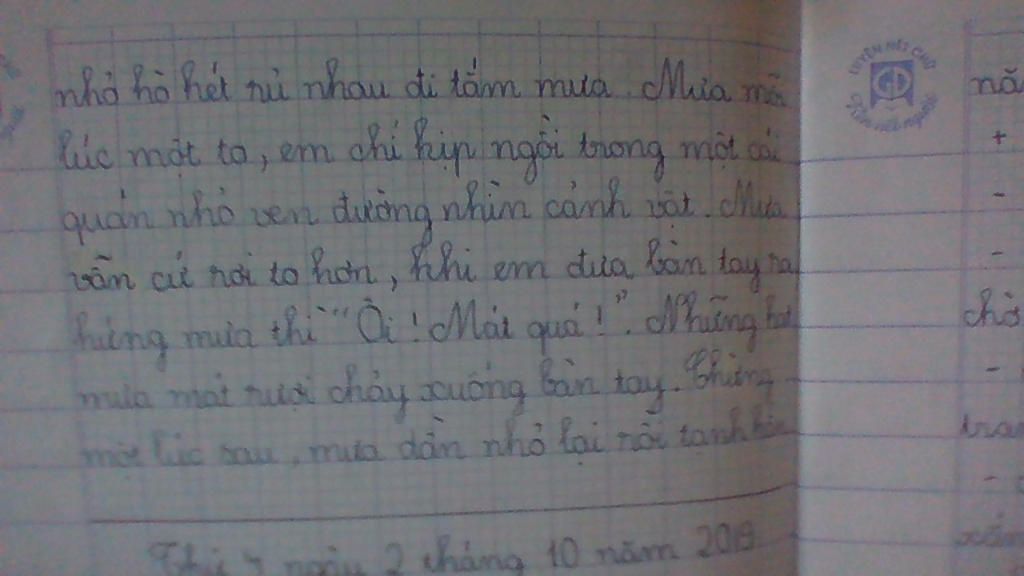 nhỏ hò hét rủ nhau đi tắm mưa. Mưa mỗi
lúc một to, em chỉ kịp ngồi trong một cái
quán nhỏ ven đường nhìn cảnh vật. Mưa
vẫn cứ rơi to hơn, khi em đưa bàn tay ra
hứng mưa thì "Ôi! Mát quá!". Những hạt
mưa mát rượi chảy xuống bàn tay. Chừng
một lúc sau, mưa dần nhỏ lại rồi tạnh hẳn
ngày 2 tháng 10 năm 2019
LUYỆN NÉT CHỮ
Rèn nết người
nă
+
-
-
chở
-
tra
-